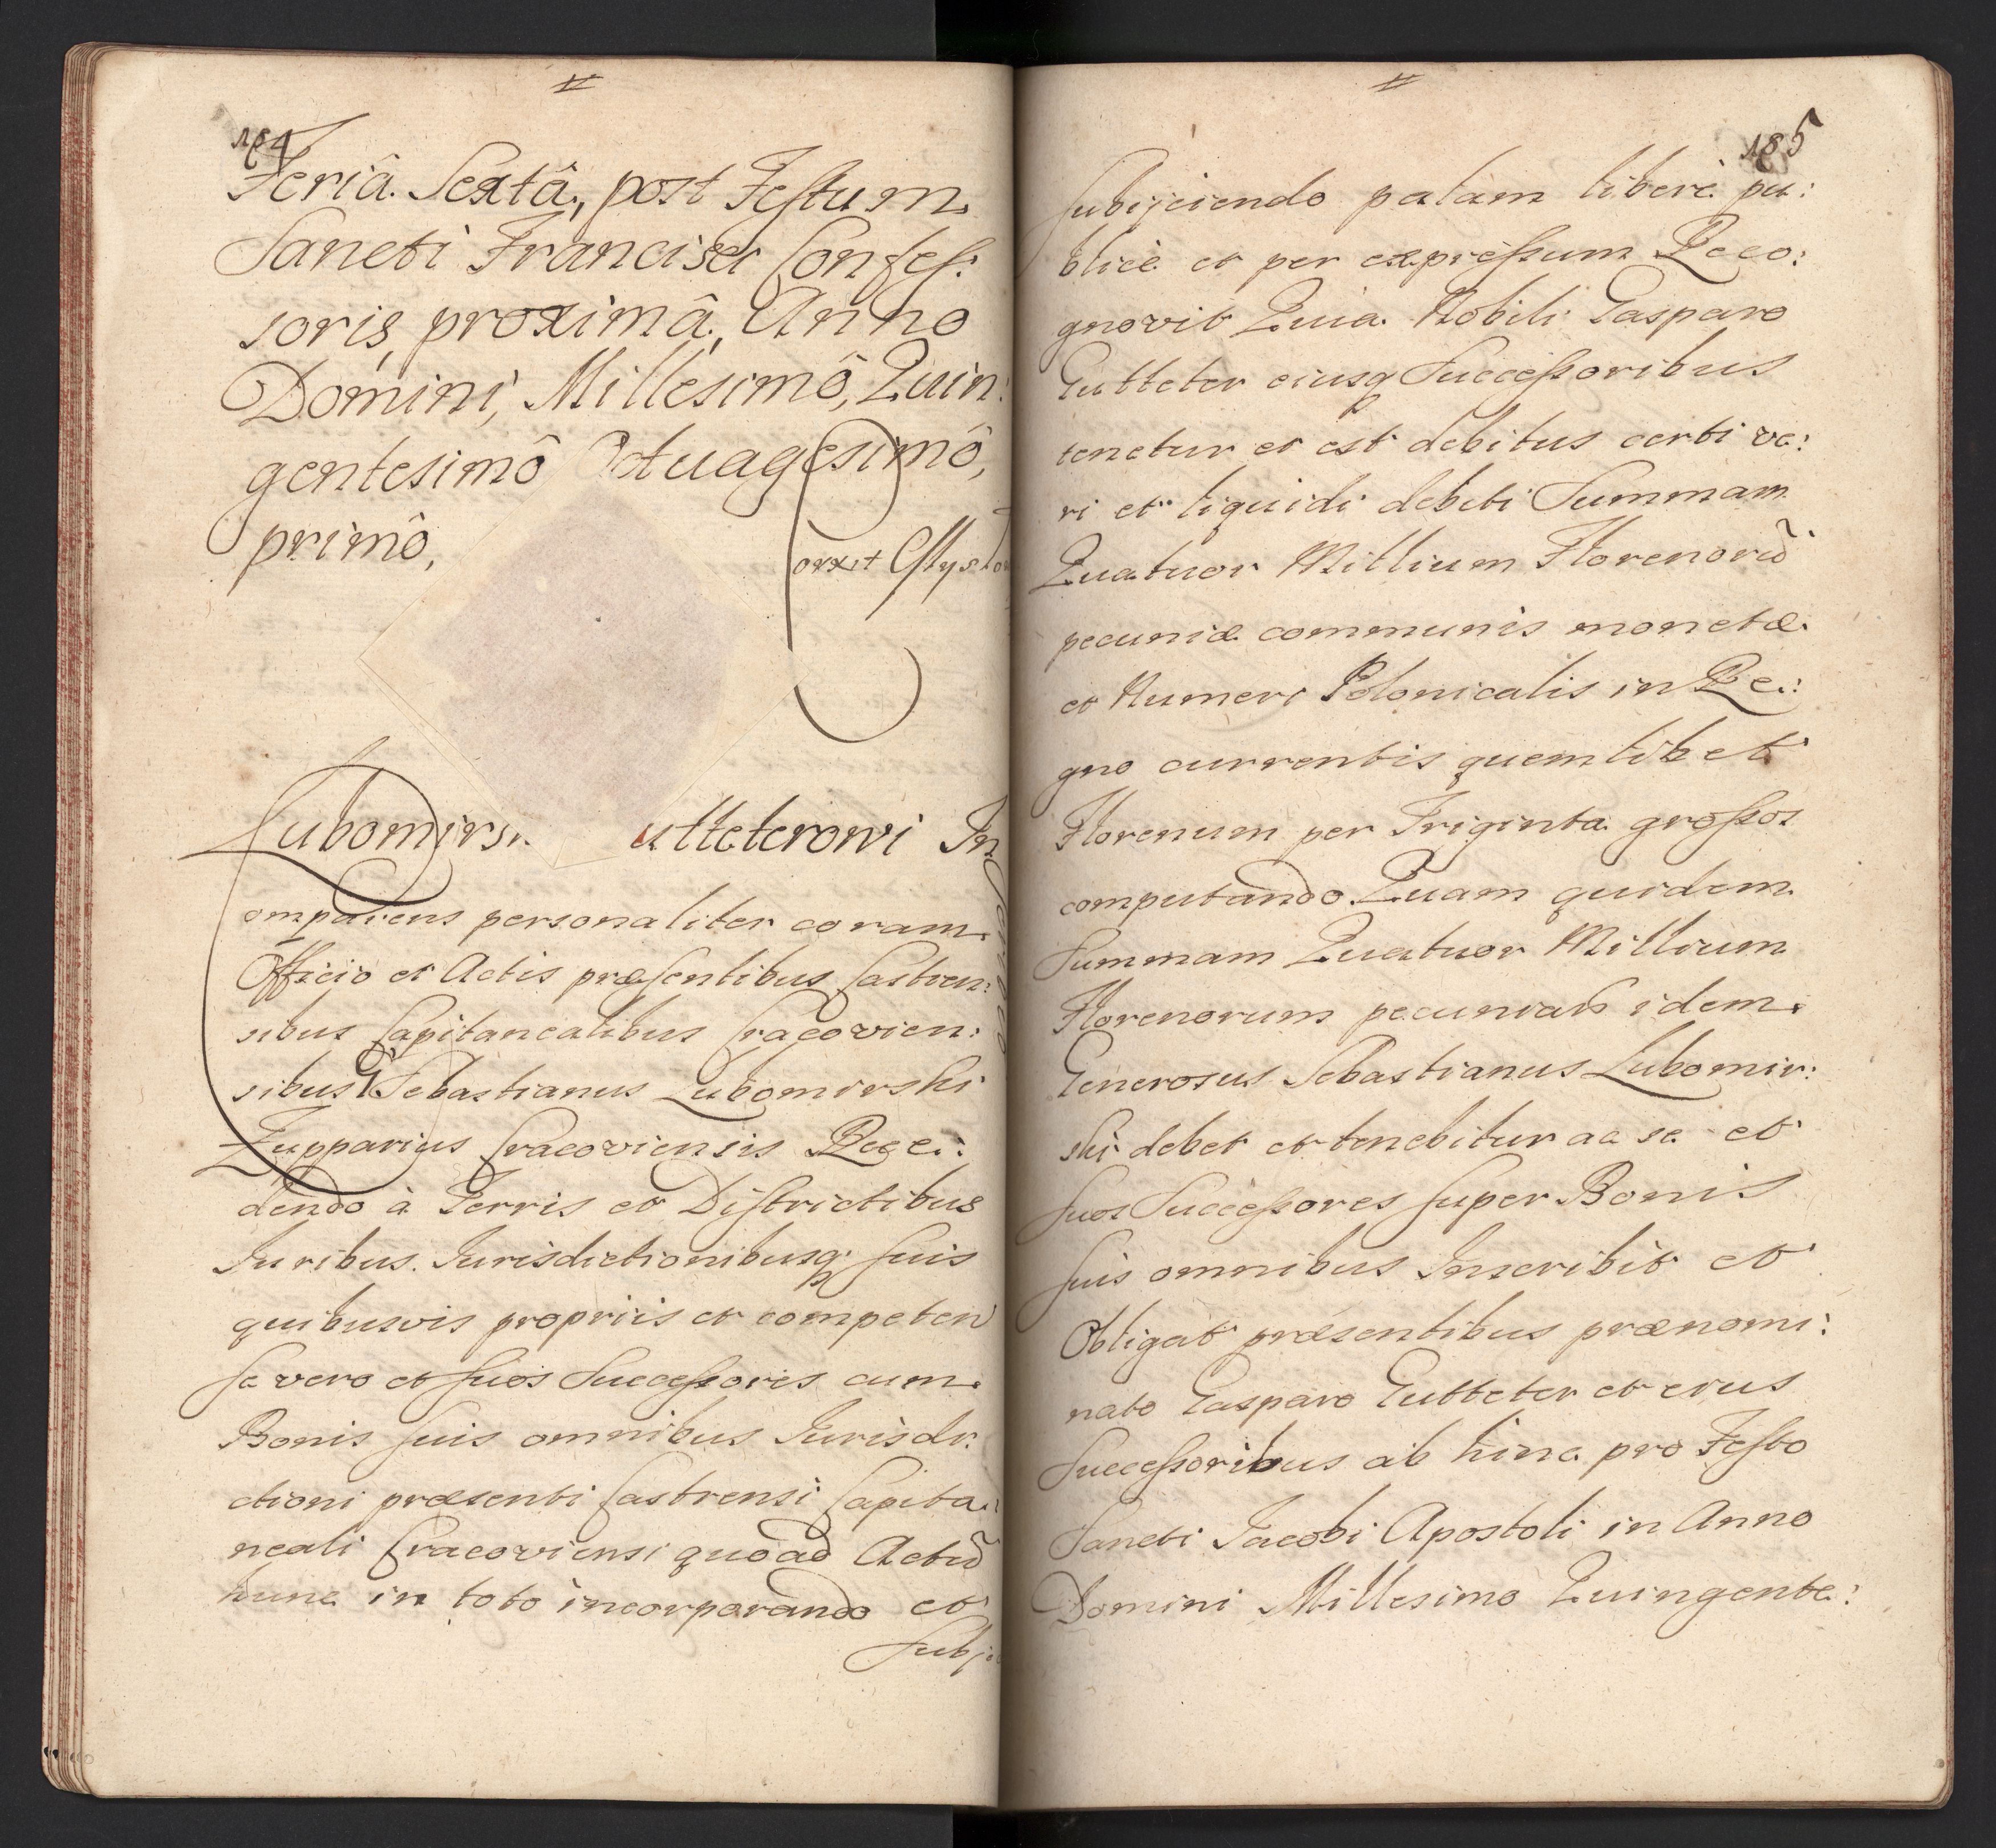 184
Feriâ Sextâ, post Festum
Sancti Francisci Confes:
soris, proximâ, Anno
Domini, Millesimô, Quin:
gentesimô Octuagesimô,
primô,
Lubomirs utteterowi In
ompariens personaliter coram
Officio et Actis præsentibus Castren:
sibus Capitanealibus Cracovien:
sibus G Sebastianus Lubomirski
Zupparius Cracoviensis Rece:
dendo à Terris et Districtibus
Iuribus Iurisdictionibusq suis
quibusvis propriis et competen
se vero et suos Successores cum
Bonis suis omnibus Iurisdi:
ctioni præsenti Castrensi Capita:
neali Cracoviensi quoad Actũ
hunc in toto incorporando et
Subj
185
subijciendo palam liberè pu:
blicè et per expressum Reco:
gnovit Quia Nobili Gasparo
Gutteter eiusq Successoribus
tenetur et est debitus certi ve:
ri et liquidi debiti Summam
Quatuor Millium Florenorũ
pecuniæ communis monetæ
et Numeri Polonicalis in Re:
gno currentis quemlibet
Florenum per Triginta grossos
computando Quam quidem
Summam Quatuor Millium
Florenorum pecuniarũ idem
Generosus Sebastianus Lubomir:
ski debet et tenebitur ac se et
suos Successores super Bonis
suis omnibus Inscribit et
Obligat præsentibus prænomi:
nato Gasparo Gutteter et eius
Successoribus ab hinc pro Festo
Sancti Iacobi Apostoli in Anno
Domini Millesimo Quingente: